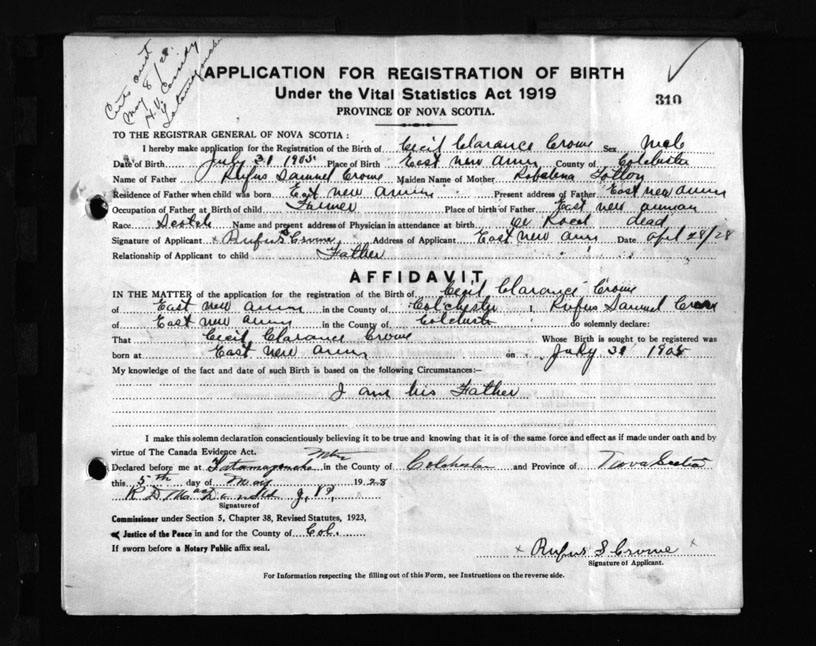 Certs sent
May 8/28
H.V. Cassidy
Tatamagouche
APPLICATION FOR REGISTRATION OF BIRTH
Under the Vital Statistics Act 1919
310
PROVINCE OF NOVA SCOTIA.
TO THE REGISTRAR GENERAL OF NOVA SCOTIA :
I hereby make application for the Registration of the Birth of Cecil Clarance Crowe Sex Male
Date of Birth July 31 1905 Place of Birth East New Annn County of Colchester
Name of Father Rufus Samuel Crowe Maiden Name of Mother
Residence of Father when child was born East New Annn Present address of Father East New Annn
Occupation of Father at Birth of child Farmer Place of birth of Father East New Annan
Race Scotch Name and present address of Physician in attendance at birth Dr Roach dead
Signature of Applicant x Rufus S Crowe Address of Applicant East New Ann Date Apr 28/28
Relationship of Applicant to child Father
AFFIDAVIT
IN THE MATTER of the application for the registration of the Birth of Cecil Clarance Crowe
of East New Annn in the County of Colchester I, Rufus Samuel Crowe
of East New Annn in the County of Colchester do solemnly declare:
That Cecil Clarance Crowe Whose Birth is sought to be registered was
born at East New Annn on July 31 1905
My knowledge of the fact and date of such Birth is based on the following Circumstances:—
I am his Father
I make this solemn declaration conscientiously believing it to be true and knowing that it is of the same force and effect as if made under oath and by
virtue of The Canada Evidence Act.
Declared before me at Tatamagouche Mtn in the County of Colchester and Province of Nova Scotia
this 5th day of May 1928
R D J.P.
Signature of
Commissioner under Section 5, Chapter 38, Revised Statutes, 1923,
Justice of the Peace in and for the County of Col.
If sworn before a Notary Public affix seal.
x Rufus S Crowe x
Signature of Applicant.
For Information respecting the filling out of this Form, see Instructions on the reverse side.